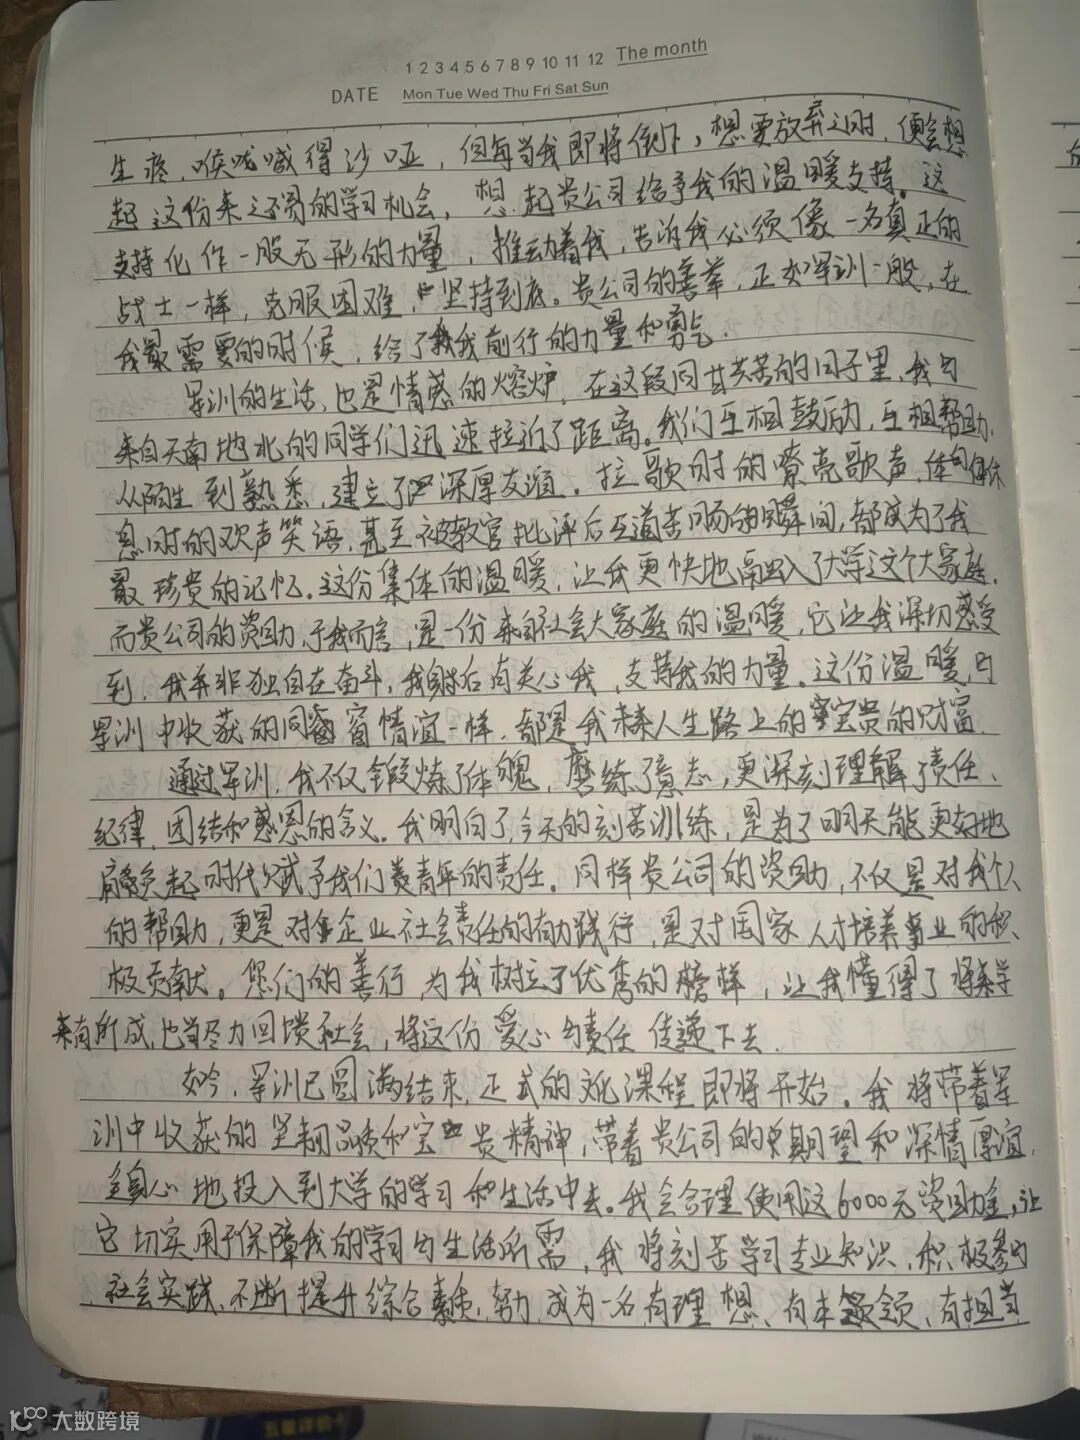 1 2 3 4 5 6 7 8 9 10 11 12 The month
DATE Mon Tue Wed Thu Fri Sat Sun
生疼，喉咙喊得沙哑，但每当我即将倒下，想要放弃之时，便会想
起这份来之不易的学习机会，想起贵公司给予我的温暖支持。这
支持化作一股无形的力量，推动着我，告诉我必须像一名真正的
战士一样，克服困难，坚持到底。贵公司的善举，正如军训一般，在
我最需要的时候，给了我前行的力量和勇气.
军训的生活，也是情感的熔炉，在这段同甘共苦的日子里，我与
来自天南地北的同学们迅速拉近了距离。我们互相鼓励，互相帮助，
从陌生到熟悉，建立了深厚友谊。拉歌时的嘹亮歌声，休
息时的欢声笑语，甚至被教官批评后互道苦的瞬间，都成为了我
最珍贵的记忆。这份集体的温暖，让我更快地融入了大学这个大家庭.
而贵公司的资助，于我而言，是一份来自社会大家庭的温暖，它让我深切感受
到，我并非独自在奋斗，我身后有关心我，支持我的力量。这份温暖，与
军训中收获的同窗情谊一样，都是我未来人生路上的宝贵的财富.
通过军训，我不仅锻炼了体魄，磨练了意志，更深刻理解了责任、
纪律、团结和感恩的含义。我明白了，今天的刻苦训练，是为了明天能更好地
肩负起时代赋予我们青年的责任。同样贵公司的资助，不仅是对我个人
的帮助，更是对企业社会责任的有力践行，是对国家人才培养事业的积
极贡献。您们的善行，为我树立了优秀的榜样，让我懂得了将来学
来有所成，也当尽力回馈社会，将这份爱心与责任传递下去.
如今，军训已圆满结束，正式的文化课程即将开始。我将带着军
训中收获的坚韧品质和宝贵精神，带着贵公司的期望和深情厚谊，
全身心地投入到大学的学习和生活中去。我会合理使用这6000元资助金，让
它切实用于保障我的学习与生活所需，我将刻苦学习专业知识，积极参与
社会实践，不断提升综合素质，努力成为一名有理想、有本领、有担当
大数跨境